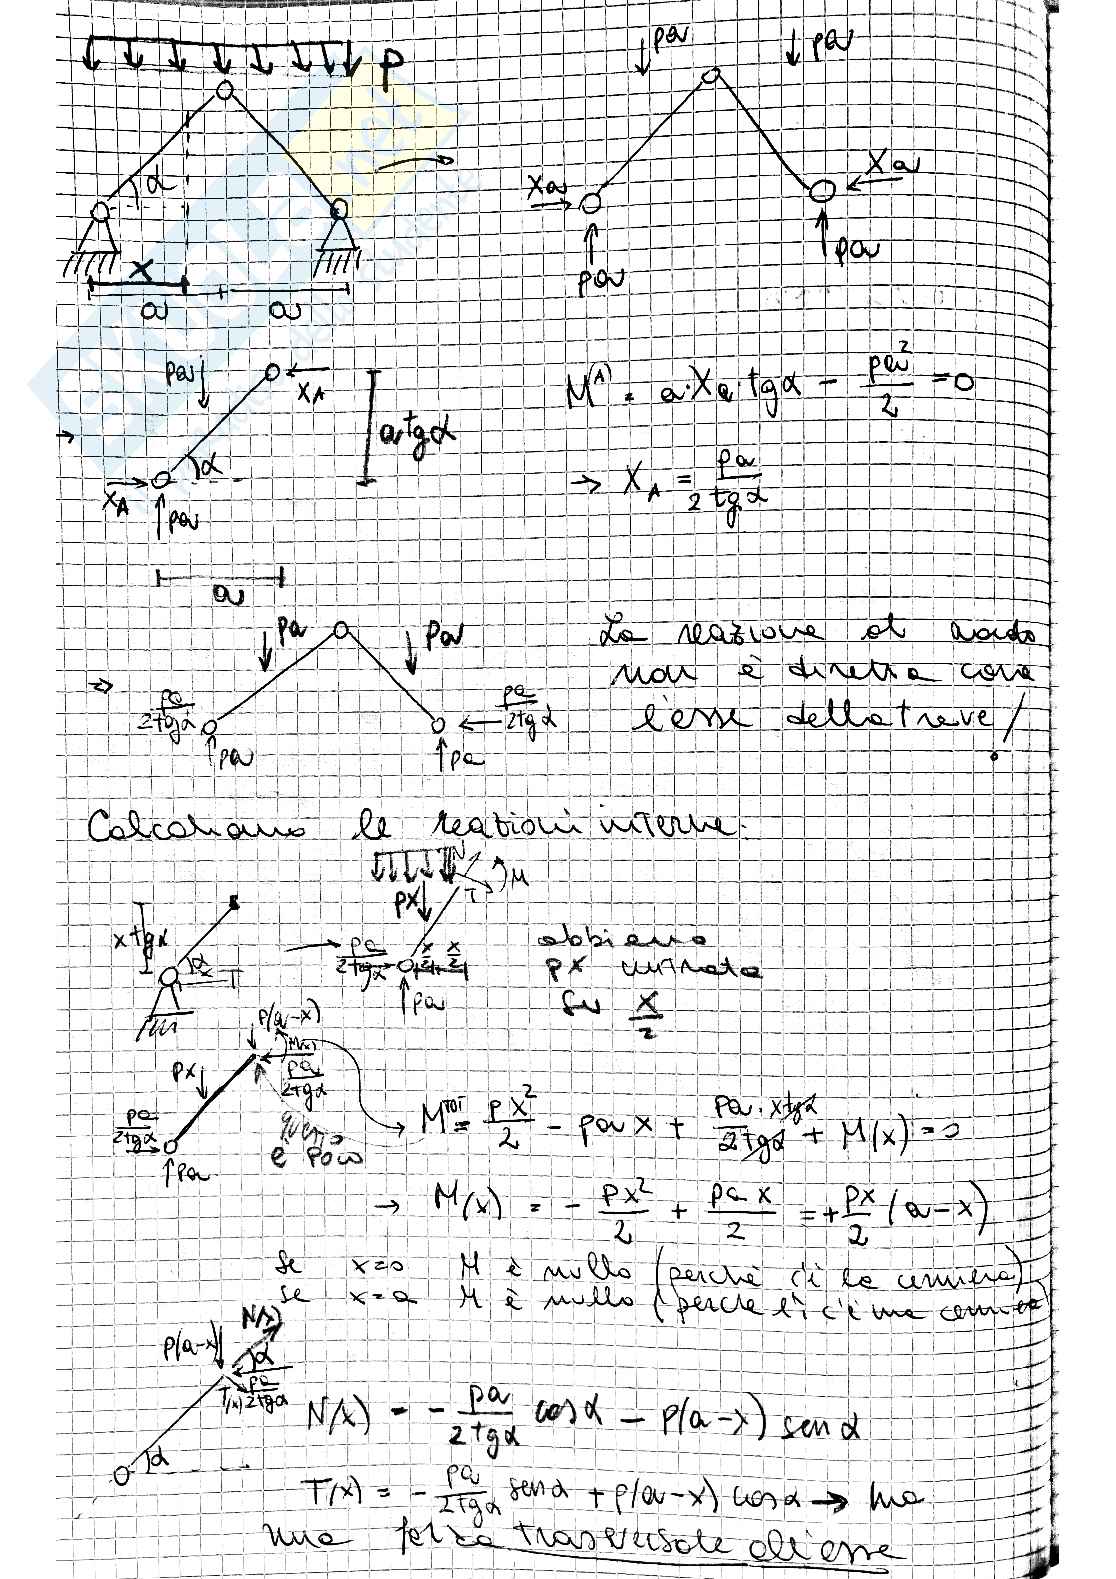 p
pa
pa
α
Xa
Xa
x
pa
pa
a
a
pa
X_A
a tgα
α
X_A
pa
a
M^(A) = a·X_a·tgα - pa²/2 = 0
→ X_A = pa/2tgα
pa
pa
pa/2tgα
pa/2tgα
pa
pa
La reazione al nodo
non è diretta come
l'asse della trave!
Calcoliamo le reazioni interne:
N
M
T
px
x tgα
α
x
pa/2tgα
x/2 x/2
pa
abbiamo
px
su x/2
p(a-x)
M(x)
px
pa/2tgα
pa/2tgα
pa
questo
è poco
M^TOT = px²/2 - pax + pa·xtgα/2tgα + M(x) = 0
→ M(x) = - px²/2 + pax/2 = + px/2 (a-x)
se x=0 M è nullo (perché c'è la cerniera)
se x=a M è nullo (perché lì c'è una cerniera)
N(x)
p(a-x)
α
T(x)
pa/2tgα
α
N(x) = - pa/2tgα cosα - p(a-x) senα
T(x) = - pa/2tgα senα + p(a-x) cosα → ho
una forza trasversale all'asse